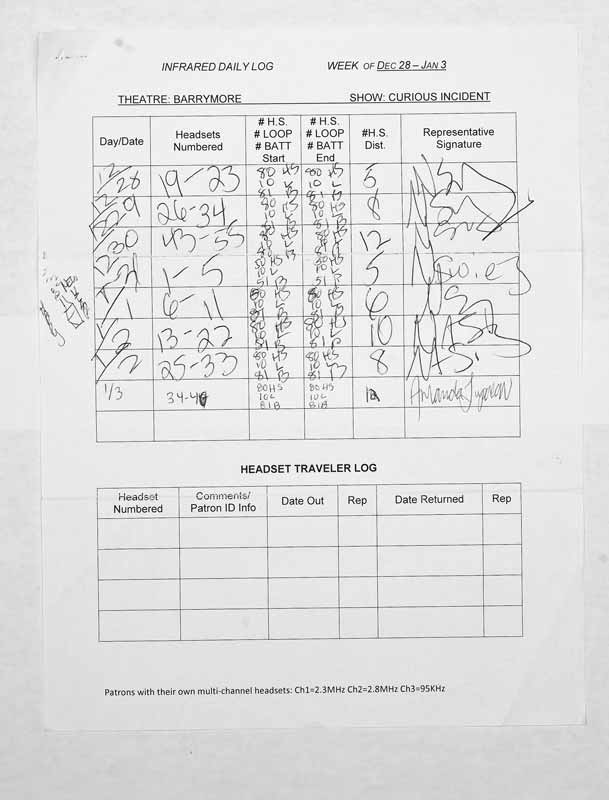 INFRARED DAILY LOG WEEK OF DEC 28 – JAN 3
THEATRE: BARRYMORE SHOW: CURIOUS INCIDENT
Day/Date Headsets Numbered # H.S. # LOOP # BATT Start # H.S. # LOOP # BATT End #H.S. Dist. Representative Signature
12/28 19-23 80 HS 10 L 81 B 80 HS 10 L 81 B 5
12/29 26-34 80 HS 10 L 81 B 80 HS 10 L 81 B 8
12/30 43-55 80 HS 10 L 81 B 80 HS 10 L 81 B 12
1-5 80 HS 10 L 81 B 80 HS 10 L 81 B 5
1/1 6-11 80 HS 10 L 81 B 80 HS 10 L 81 B 6
1/2 13-22 80 HS 10 L 81 B 80 HS 10 L 81 B 10
1/2 25-33 80 HS 10 L 81 B 80 HS 10 L 81 B 8
1/3 80HS 10L 81B 80HS 10L 81B Amanda
HEADSET TRAVELER LOG
Headset Numbered Comments/ Patron ID Info Date Out Rep Date Returned Rep
Patrons with their own multi-channel headsets: Ch1=2.3MHz Ch2=2.8MHz Ch3=95KHz